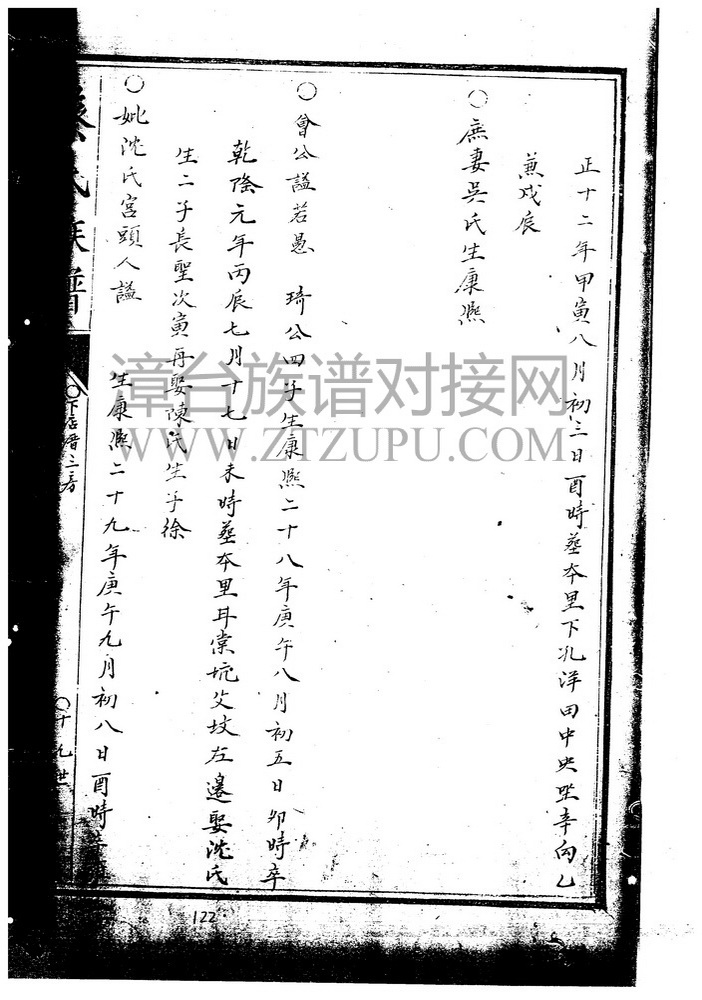 正十二年甲寅八月初三日酉時葬本里下汎洋田中央坐辛向乙
兼戍辰
○庶妻吳氏生康熙
○會公謚若愚 琦公四子生康熙二十八年庚午八月初五日卯時卒
乾隆元年丙辰七月十七日未時葬本里耳棠坑父坟左邊娶沈氏
生二子長聖次寅再娶陳氏生子徐
○妣沈氏宮頭人謚 生康熙二十九年庚午九月初八日酉時
氏族譜
○下店厝三房
○十九世
122
漳台族谱对接网
WWW.ZTZUPU.COM